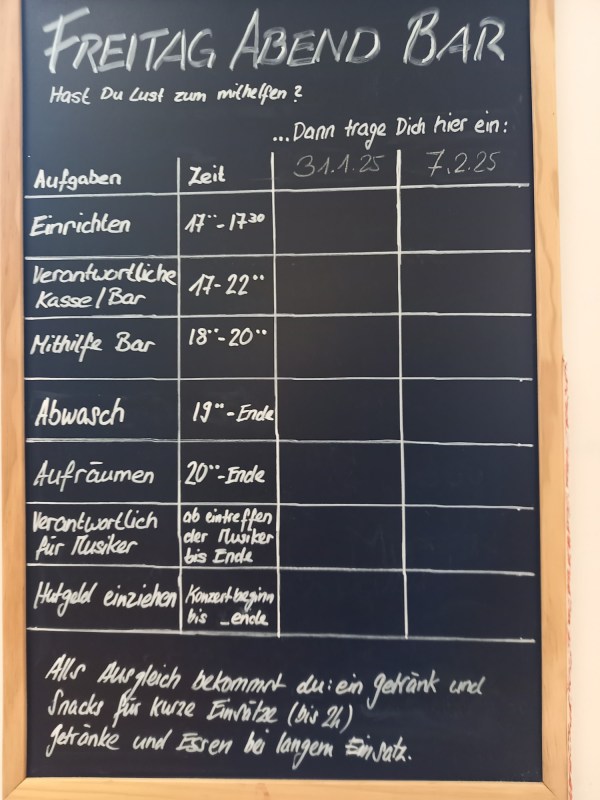 FREITAG ABEND BAR
Hast Du Lust zum mithelfen?
...Dann trage Dich hier ein:
Aufgaben Zeit 31.1.25 7.2.25
Einrichten 17¨-17³⁰
Verantwortliche
Kasse/Bar 17-22¨
Mithilfe Bar 18¨-20¨
Abwasch 19¨-Ende
Aufräumen 20¨-Ende
Verantwortlich
für Musiker
ab eintreffen
der Musiker
bis Ende
Hutgeld einziehen
Konzertbeginn
bis _ende
Alls Ausgleich bekommst du: ein getränk und
Snacks für kurze Einsätze (bis 2h)
getränke und Essen bei langem Einsatz.